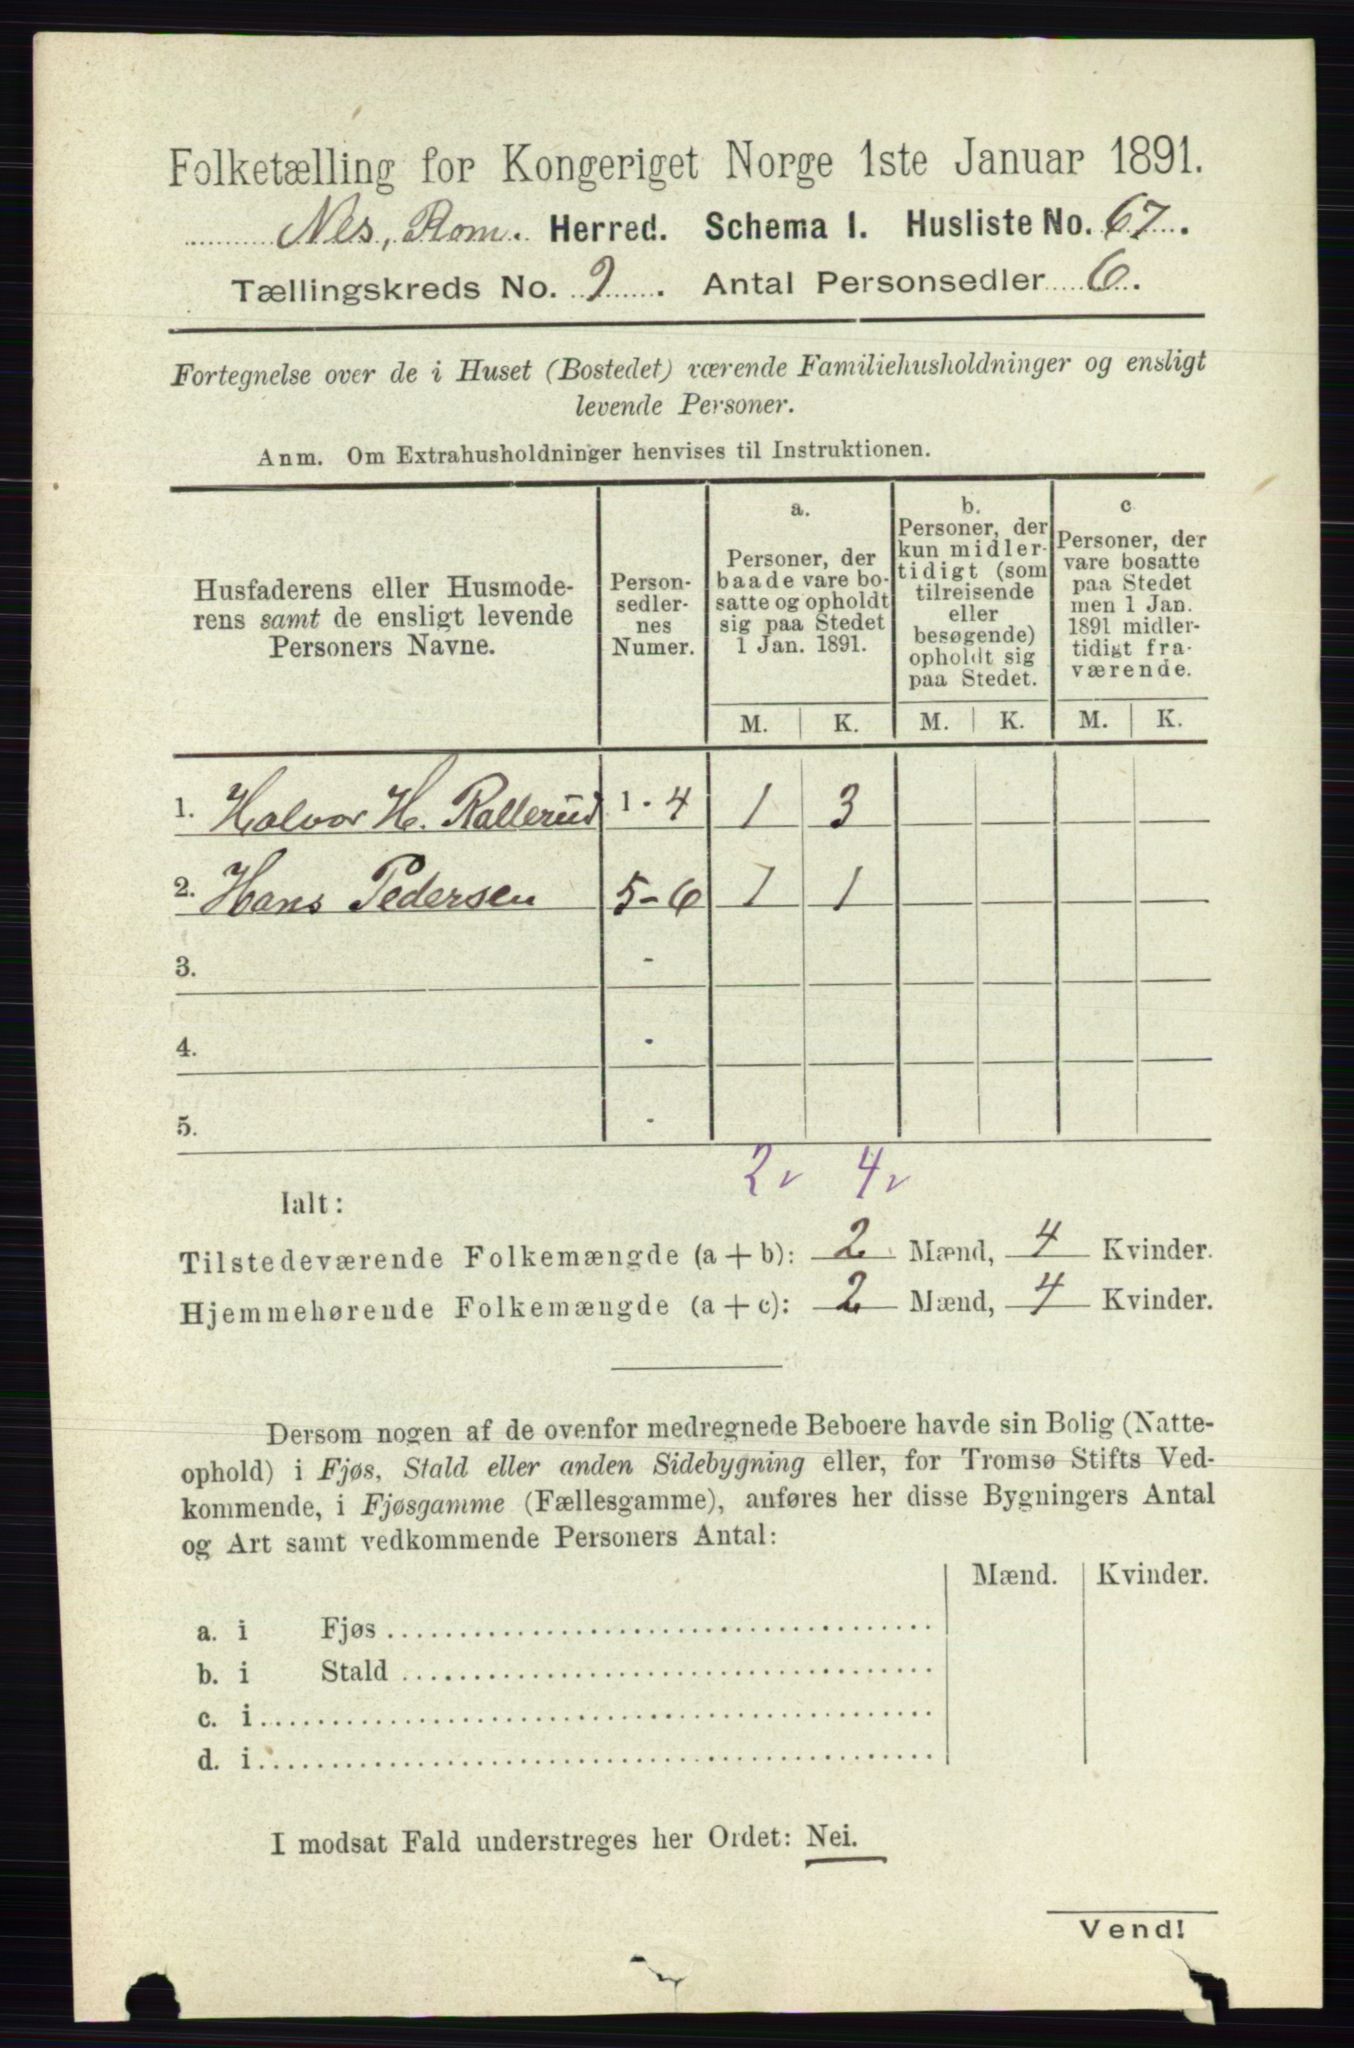 Folketælling for Kongeriget Norge 1ste Januar 1891.
Nes, Rom. Herred. Schema I. Husliste No. 67.
Tællingskreds No. 9. Antal Personsedler 6.
Fortegnelse over de i Huset (Bostedet) værende Familiehusholdninger og ensligt
levende Personer.
Anm. Om Extrahusholdninger henvises til Instruktionen.
Husfaderens eller Husmode-
rens samt de ensligt levende
Personers Navne.
Person-
sedler-
nes
Numer.
a.
Personer, der
baade vare bo-
satte og opholdt
sig paa Stedet
1 Jan. 1891.
b.
Personer, der
kun midler-
tidigt (som
tilreisende
eller
besøgende)
opholdt sig
paa Stedet.
c
Personer, der
vare bosatte
paa Stedet
men 1 Jan.
1891 midler-
tidigt fra-
værende.
M. K. M. K. M. K.
1. Halvor H. Rallerud 1-4 1 3
2. Hans Pedersen 5-6 1 1
3. -
4. -
5. -
2 v 4 v
Ialt:
Tilstedeværende Folkemængde (a + b): 2 Mænd, 4 Kvinder.
Hjemmehørende Folkemængde (a + c): 2 Mænd, 4 Kvinder.
Dersom nogen af de ovenfor medregnede Beboere havde sin Bolig (Natte-
ophold) i Fjøs, Stald eller anden Sidebygning eller, for Tromsø Stifts Ved-
kommende, i Fjøsgamme (Fællesgamme), anføres her disse Bygningers Antal
og Art samt vedkommende Personers Antal:
Mænd. Kvinder.
a. i Fjøs
b. i Stald
c. i
d. i
I modsat Fald understreges her Ordet: Nei.
Vend!